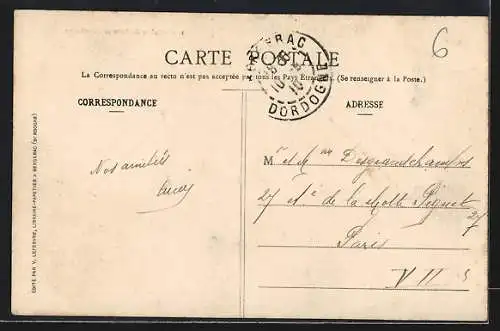 6
CARTE POSTALE
BERGERAC
DORDOGNE
La Correspondance au recto n'est pas acceptée par tous les Pays Etrangers. (Se renseigner à la Poste.)
CORRESPONDANCE
ADRESSE
Nos amitiés
Lucas
EDITÉ PAR V. LEFEBVRE, LIBRAIRE-PAPETIER À BERGERAC
Mr et Me Desgrandchamps
27 de la Motte Piquet
27
Paris
VII